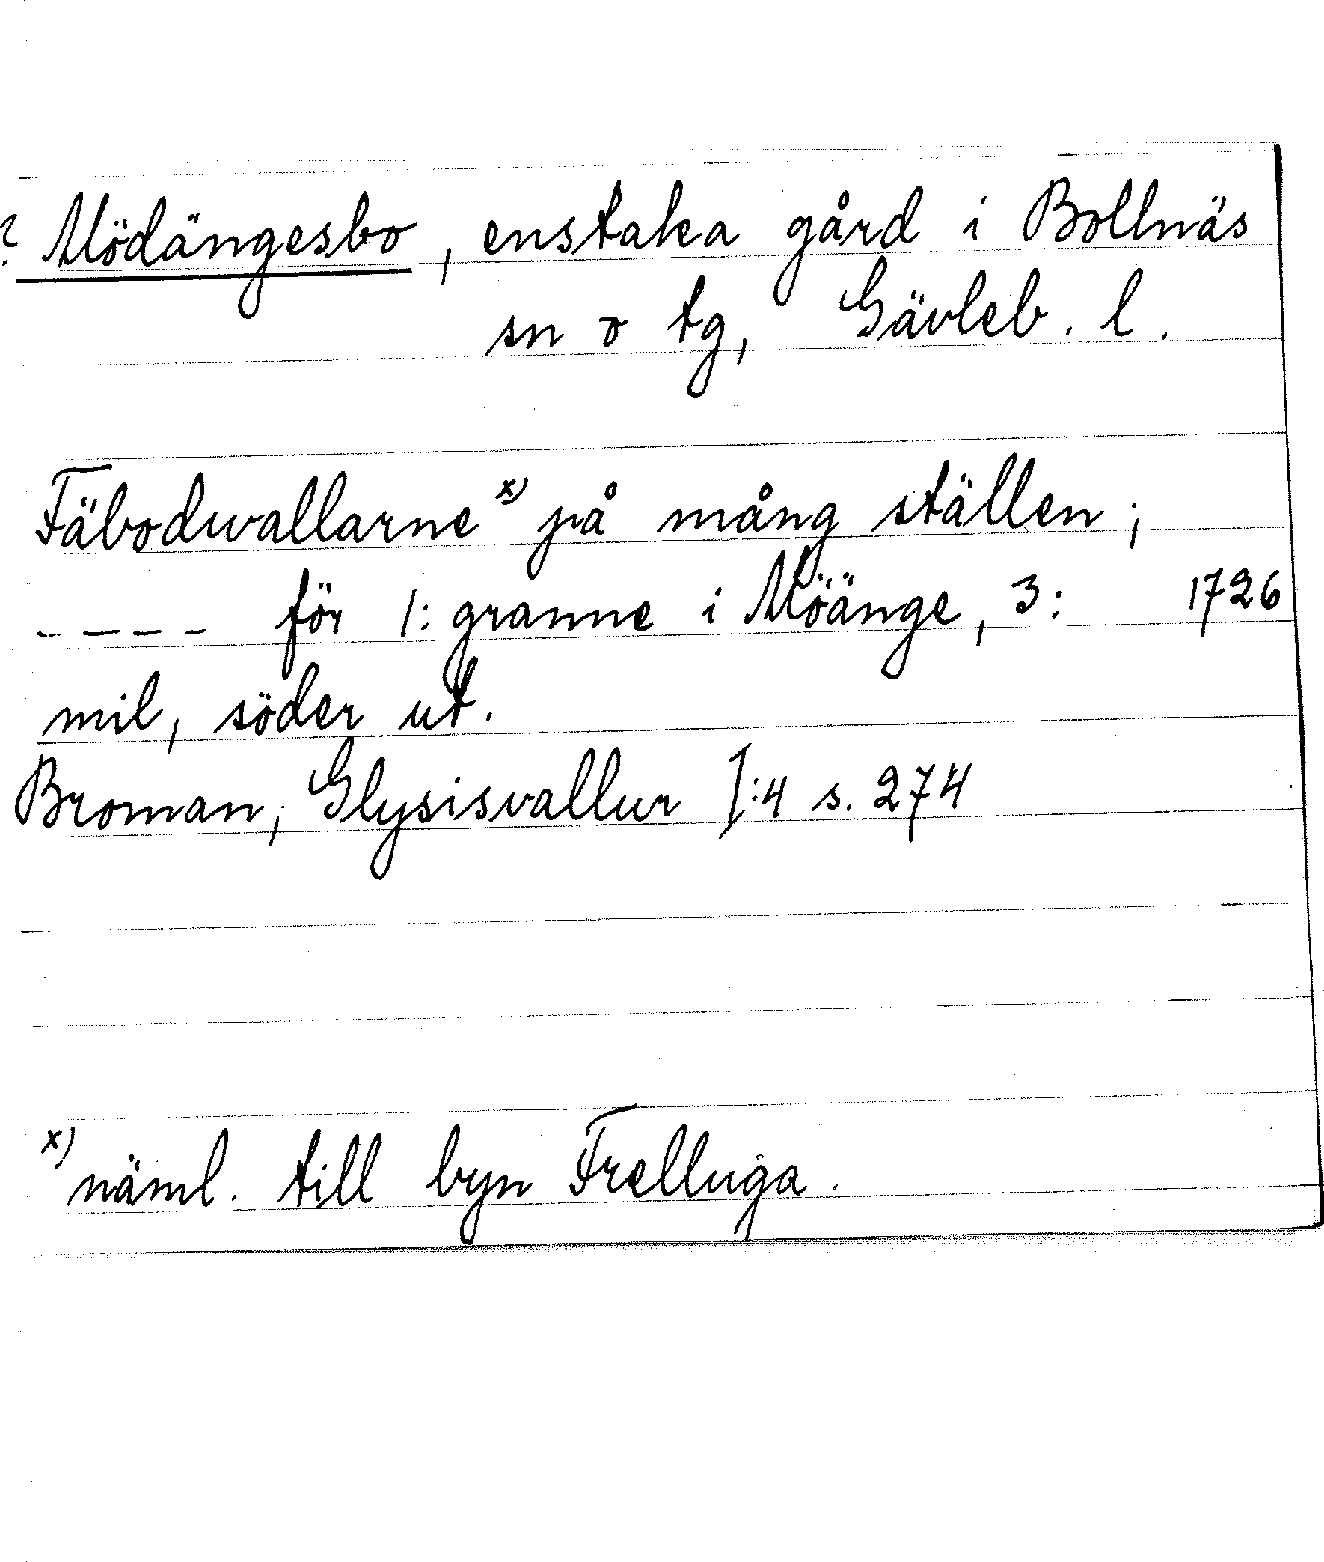 ? Mödängesbo, enstaka gård i Bollnäs
sn o tg, Gävleb. l.
Fäbodwallarne x) på mång ställen;
---- för 1: granne i Möänge, 3: 1726
mil, söder ut.
Broman, Glysisvallur I:4 s. 274
x) näml. till byn Frelluga.